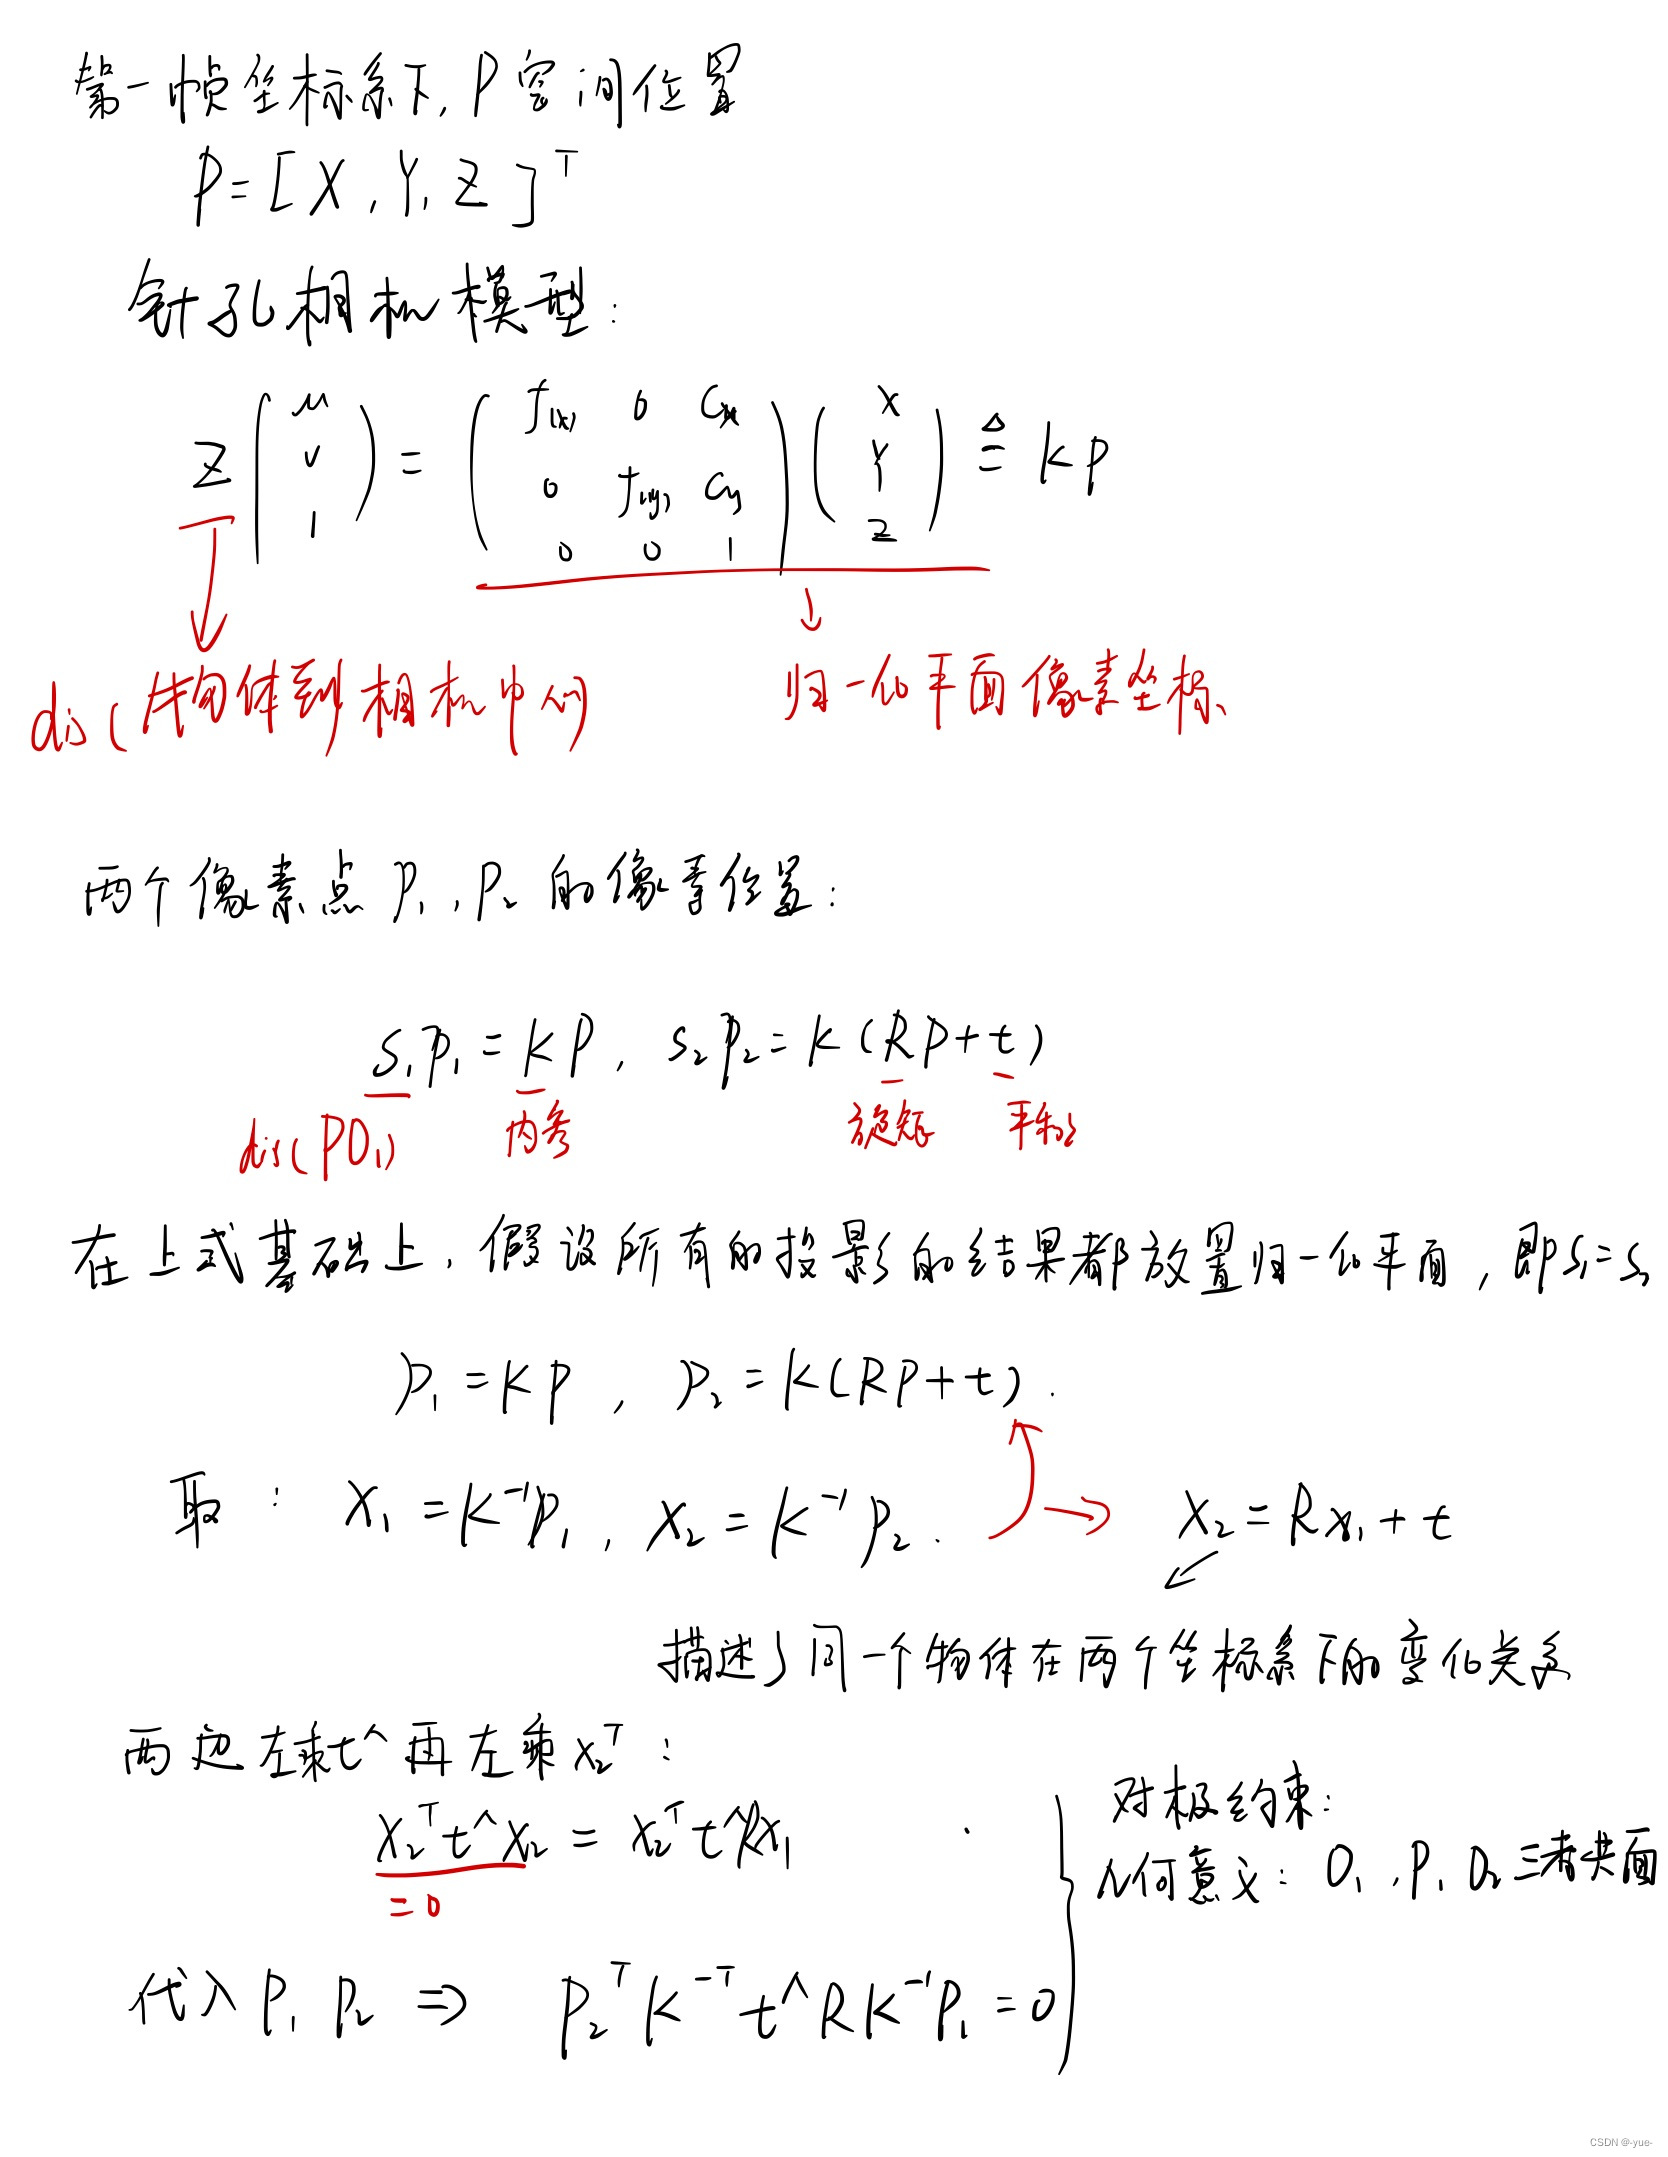 第一帧坐标系下,P空间位置
P=[X,Y,Z]ᵀ
针孔相机模型:
Z(u v 1) = (f(x) 0 Cx 0 f(y) Cy 0 0 1)(X Y Z) ≜ KP
dis(物体到相机中心) 归一化平面像素坐标
两个像素点P₁,P₂的像素位置:
S₁P₁=KP, S₂P₂=K(RP+t)
dis(PO₁) 内参 旋矩 平移
在上式基础上,假设所有的投影的结果都放置归一化平面,即S₁=S₂
P₁=KP, P₂=K(RP+t).
取: X₁=K⁻¹P₁, X₂=K⁻¹P₂. → X₂=Rx₁+t
描述了同一个物体在两个坐标系下的变化关系
两边左乘t^再左乘x₂ᵀ:
X₂ᵀt^X₂ = X₂ᵀt^RX₁
=0
对极约束:
几何意义: O₁,P,O₂三者共面
代入P₁ P₂ ⇒ P₂ᵀK⁻ᵀt^RK⁻¹P₁=0
CSDN @-yue-